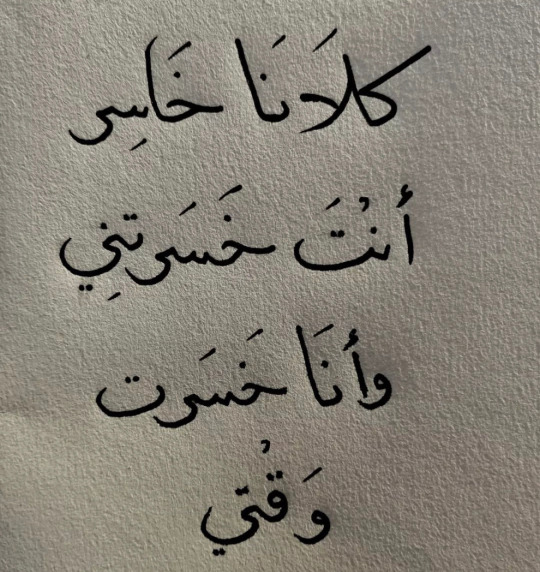 كلَانَا خَاسِر
أنْتَ خَسَرتنِي
وأنَا خَسَرت
وَقْتي